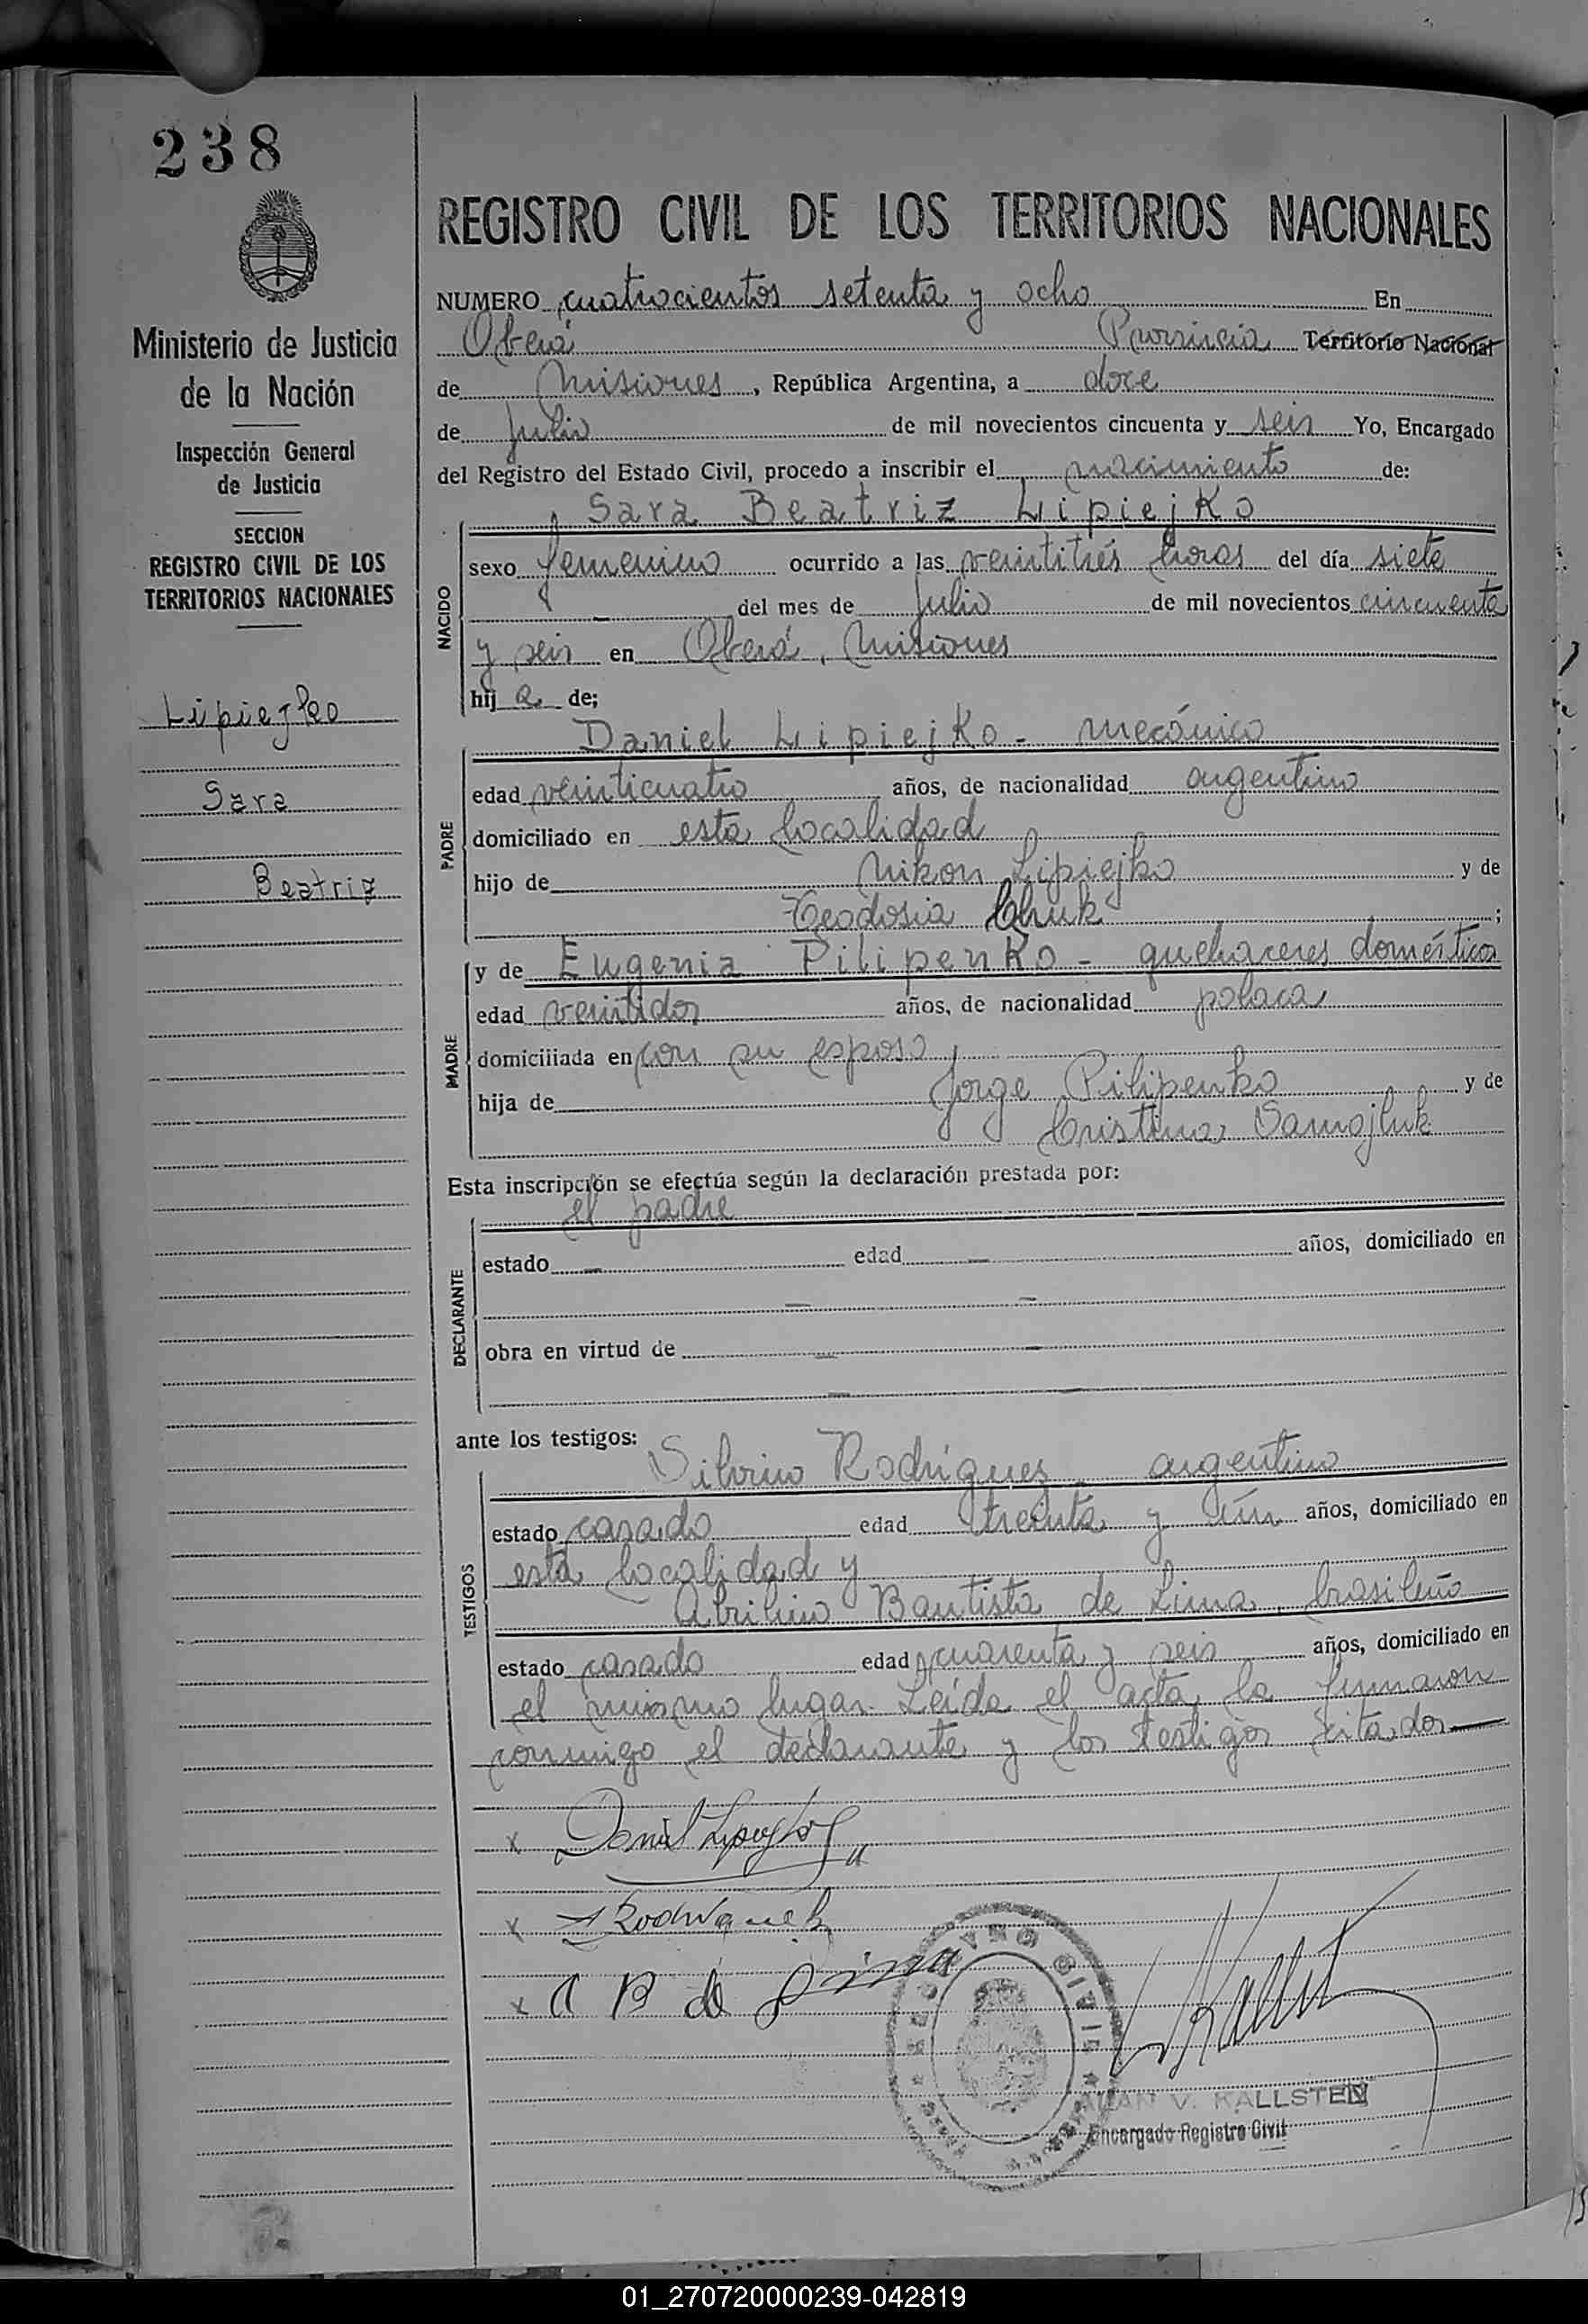 238
Ministerio de Justicia
de la Nación
Inspección General
de Justicia
SECCION
REGISTRO CIVIL DE LOS
TERRITORIOS NACIONALES
Lipiejko
Sara
Beatriz
REGISTRO CIVIL DE LOS TERRITORIOS NACIONALES
NUMERO cuatrocientos setenta y ocho En
Oberá Provincia Territorio Nacional
de Misiones, República Argentina, a doce
de Julio de mil novecientos cincuenta y seis Yo, Encargado
del Registro del Estado Civil, procedo a inscribir el nacimiento de:
Sara Beatriz Lipiejko
NACIDO
sexo femenino ocurrido a las veintitrés horas del día siete
del mes de Julio de mil novecientos cincuenta
y seis en Oberá, Misiones
hij a de;
Daniel Lipiejko - mecánico
PADRE
edad veinticuatro años, de nacionalidad argentino
domiciliado en esta localidad
hijo de Nikon Lipiejko y de
Teodosia Chuk;
y de Eugenia Pilipenko - quehaceres domésticos
MADRE
edad veintidos años, de nacionalidad polaca
domiciliada en con su esposo
hija de Jorge Pilipenko y de
Cristina Samojluk
Esta inscripción se efectúa según la declaración prestada por:
el padre
DECLARANTE
estado — edad — años, domiciliado en
— —
obra en virtud de — —
— —
ante los testigos:
Silvino Rodrigues argentino
TESTIGOS
estado casado edad treinta y un años, domiciliado en
esta localidad y
Abrilino Bautista de Lima, brasileño
estado casado edad cuarenta y seis años, domiciliado en
el mismo lugar. Leída el acta la firmaron
conmigo el declarante y los testigos citados
x Daniel Lipiejko
x Rodriguez
x A B de Lima
REGISTRO CIVIL
V. KALLSTEN
Encargado Registro Civil
01_270720000239-042819